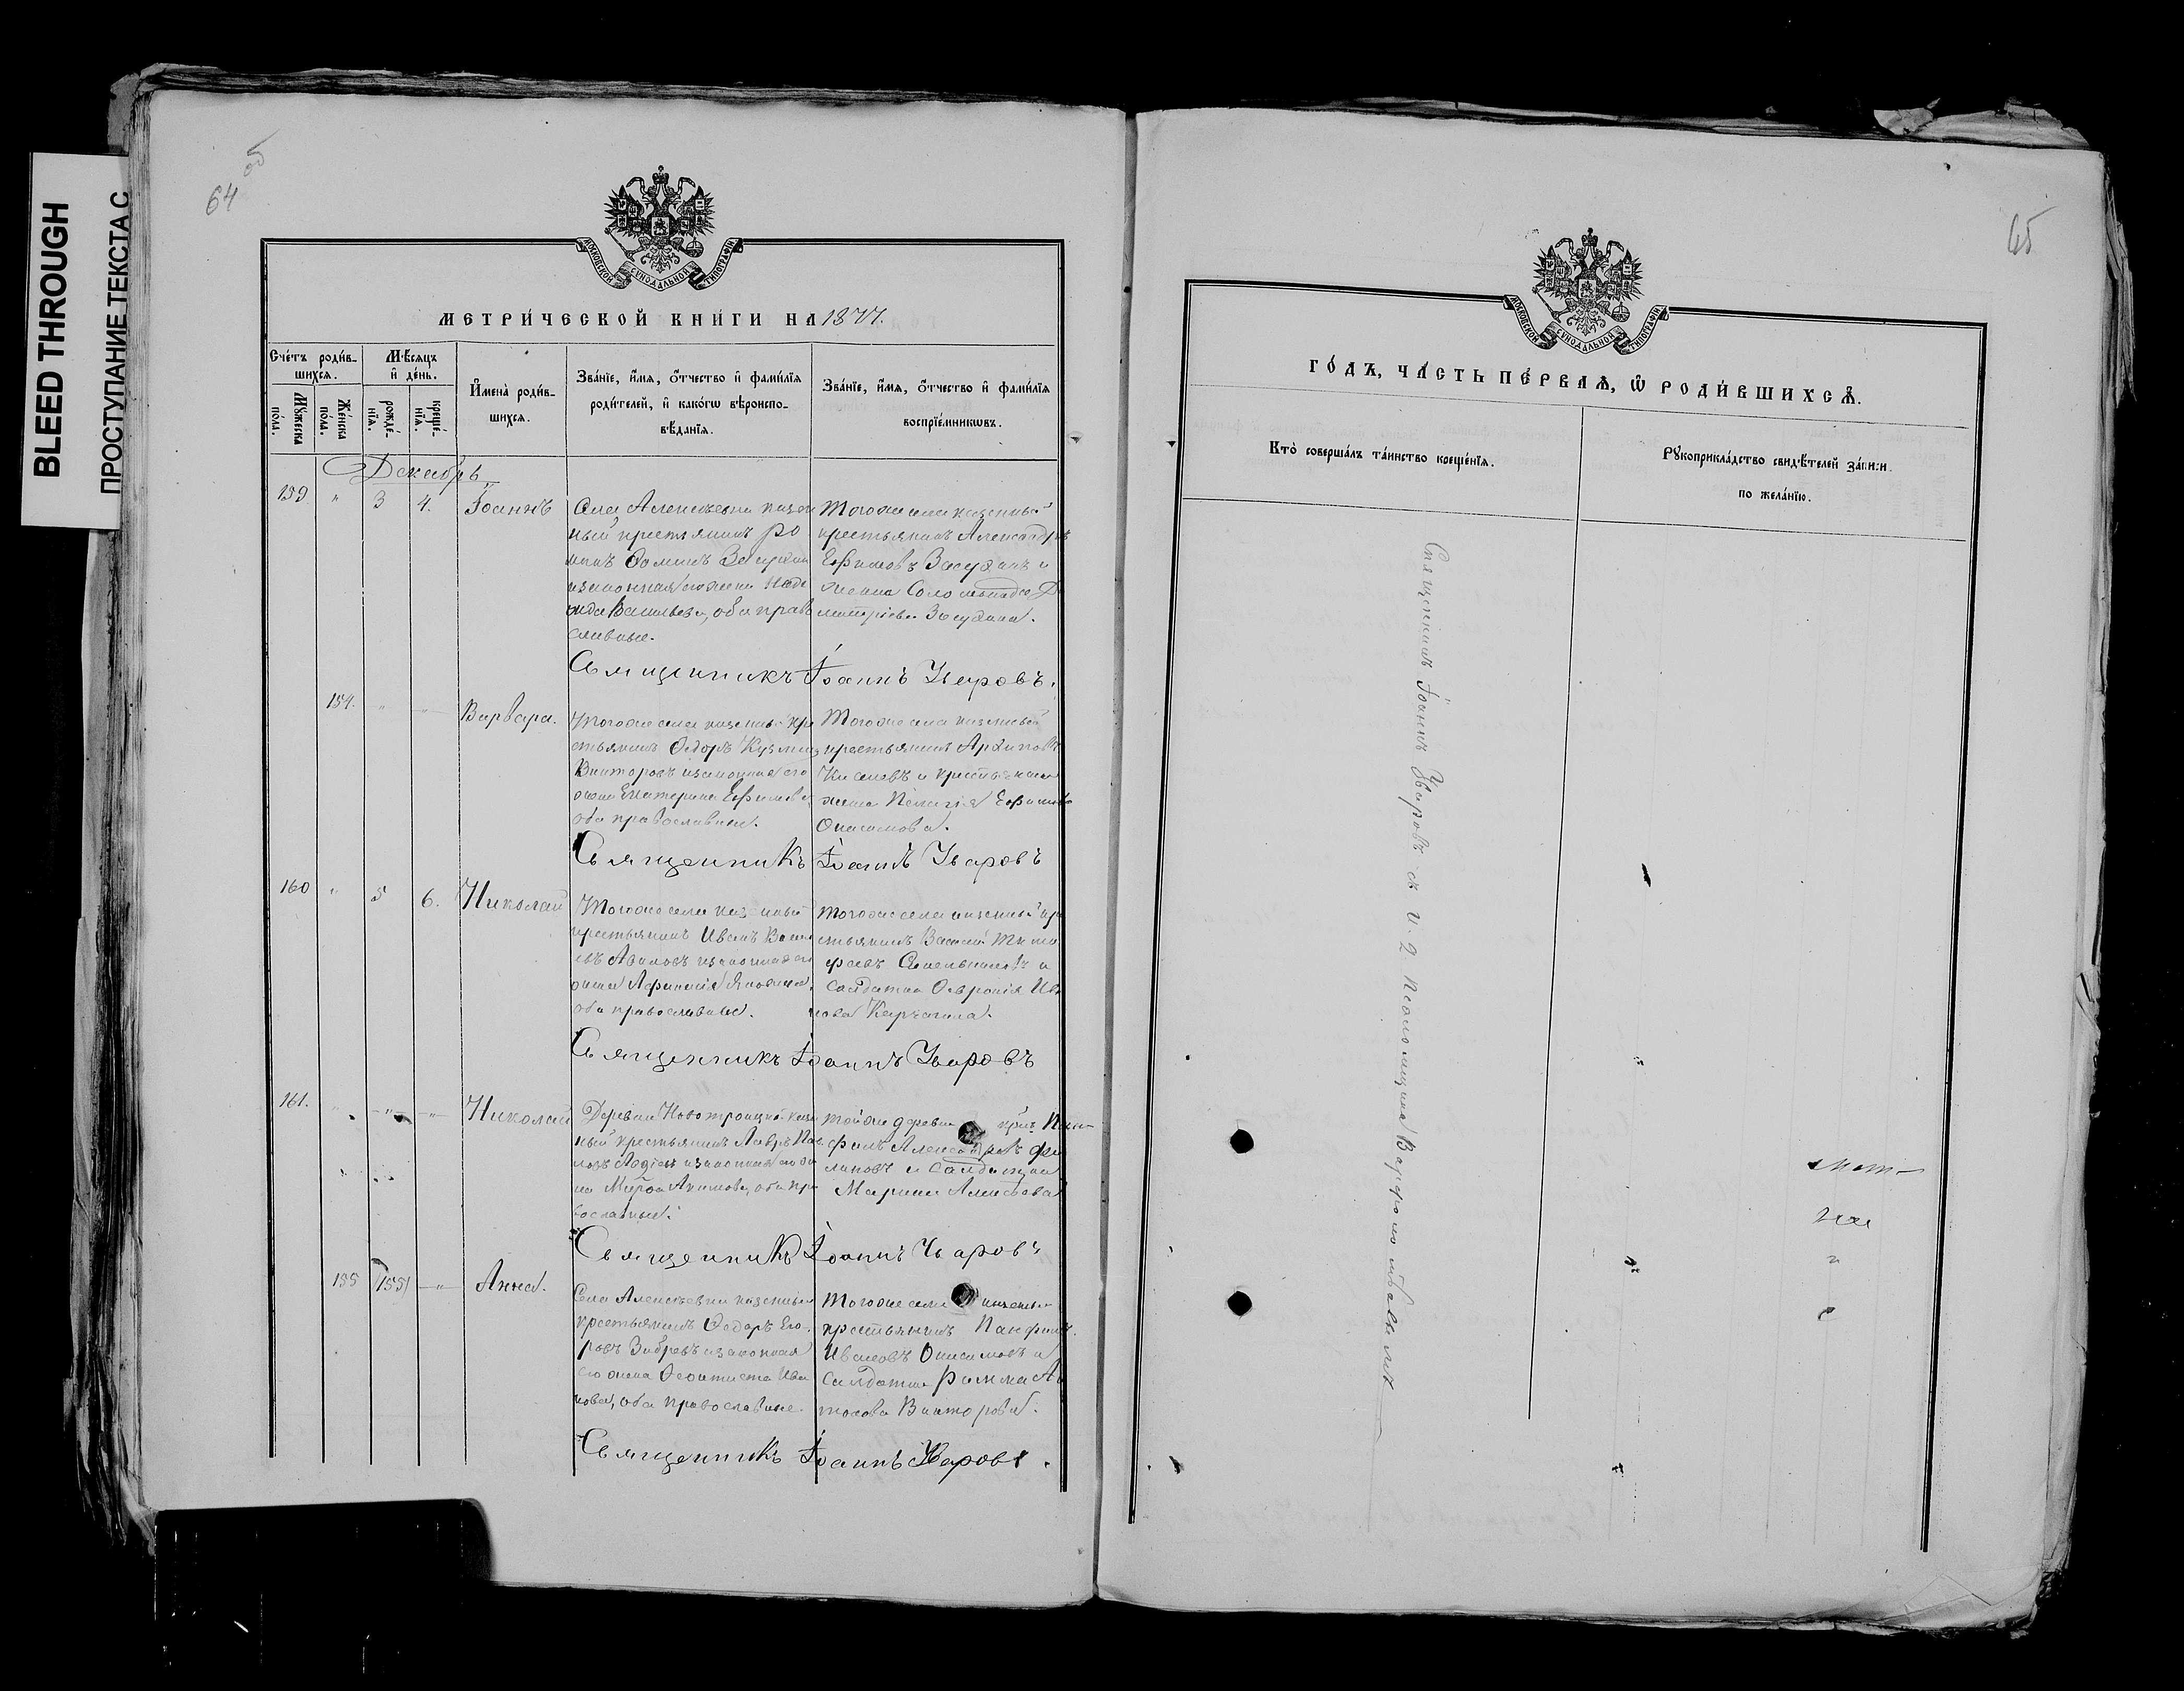 BLEED THROUGH
ПРОСТУПАНИЕ ТЕКСТА С
64 об
65
МОСКОВСКОЙ СУНОДАЛЬНОЙ ТИПОГРАФІИ
МЕТРИ́ЧЕСКОЙ КНИ́ГИ НА 1877.
Сче́тъ роди́в-
шихсѧ.
Мѣ́сѧцъ
и҆ де́нь.
Мꙋ́жеска
по́ла.
Же́нска
по́ла.
рожде́-
нїѧ.
креще́-
нїѧ.
И҆мена̀ роди́в-
шихсѧ.
Зва́нїе, и҆́мѧ, ѻ҆́тчество и҆ фамі́лїѧ
роди́телей, и҆ како́гѡ вѣроиспо-
вѣ́данїѧ.
Зва́нїе, и҆́мѧ, ѻ҆́тчество и҆ фамі́лїѧ
воспрїе́мникѡвъ.
Декабрь
159. " 3 4. Іоаннъ
Села Алексѣевки казен
ный крестьянинъ Ро
манъ Ѳоминъ Засухин
и законная его жена Наде
жда Васильева, оба прав
славные.
Тогоже села казенный
крестьянинъ Александръ
Ефимовъ Засухинъ и
жена Соломонида Ди
митріева Засухина.
Священникъ Іоаннъ Уваровъ.
154. " " Варвара.
Тогоже села казенный кре
стьянинъ Ѳедоръ Кузминъ
Викторовъ и законная его
жена Екатерина Ефимова
оба православные.
Тогоже села казенный
крестьянинъ Архипъ
Киселевъ и крестьянская
жена Пелагія Ефимова
Онисимова.
Священникъ Іоаннъ Уваровъ
160 " 5 6. Николай
Тогоже села казенный
крестьянинъ Иванъ Васил
евъ Акимовъ и законная его
жена
оба православные.
тогоже села казенный кре
стьянинъ Василій Тимо
феевъ и
солдатка Ѳевронія Ива
нова Карчагина.
Священникъ Іоаннъ Уваровъ
161. " " " Николай
Деревни Новотроицкой казен
ный крестьянинъ Лавръ Пав
ловъ и законная его же
на Акимова, оба пра
вославные.
тойже деревни кр. Пан
филъ Александровъ Фи
липовъ и солдатка
Марина Алексѣева
Священникъ Іоаннъ Уваровъ
155 (155) " Анна.
Села Алексѣевки казенный
крестьянинъ Ѳедоръ Его
ровъ и законная
его жена Ѳеоктиста Ива
нова, оба православные.
Тогоже села казенный
крестьянинъ Панфилъ
Ивановъ Онисимовъ и
солдатка Римма Ан
тонова Викторова.
Священникъ Іоаннъ Уваровъ.
МОСКОВСКОЙ СУНОДАЛЬНОЙ ТИПОГРАФІИ
ГО́ДЪ, ЧА́СТЬ ПЕ́РВАѦ, Ѽ РОДИ́ВШИХСѦ.
Кто̀ соверша́лъ та́инство креще́нїѧ.
Рꙋкоприкла́дство свидѣ́телей за́писи
по жела́нїю.
Священникъ Іоаннъ Уваровъ съ и. д. псаломщика